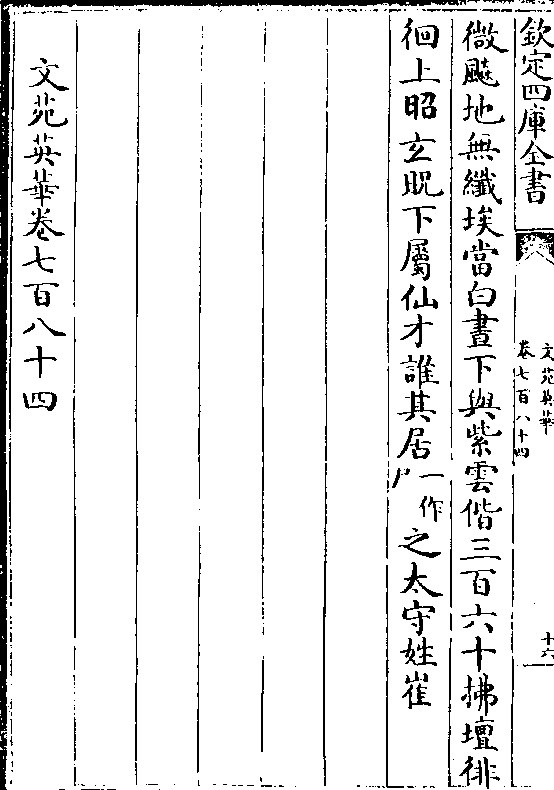 欽定四庫全書
文苑英華
卷七百八十四
十六
微飇地無纖埃當白晝下與紫雲偕三百六十拂壇徘
徊上昭玄貺下屬仙才誰其居一作尸之太守姓崔
文苑英華卷七百八十四